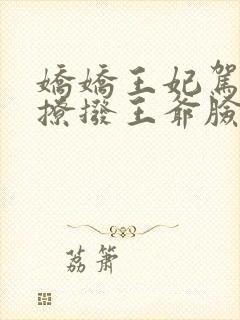 嬌嬌王妃駕
撩撥王爺臉
荔簫